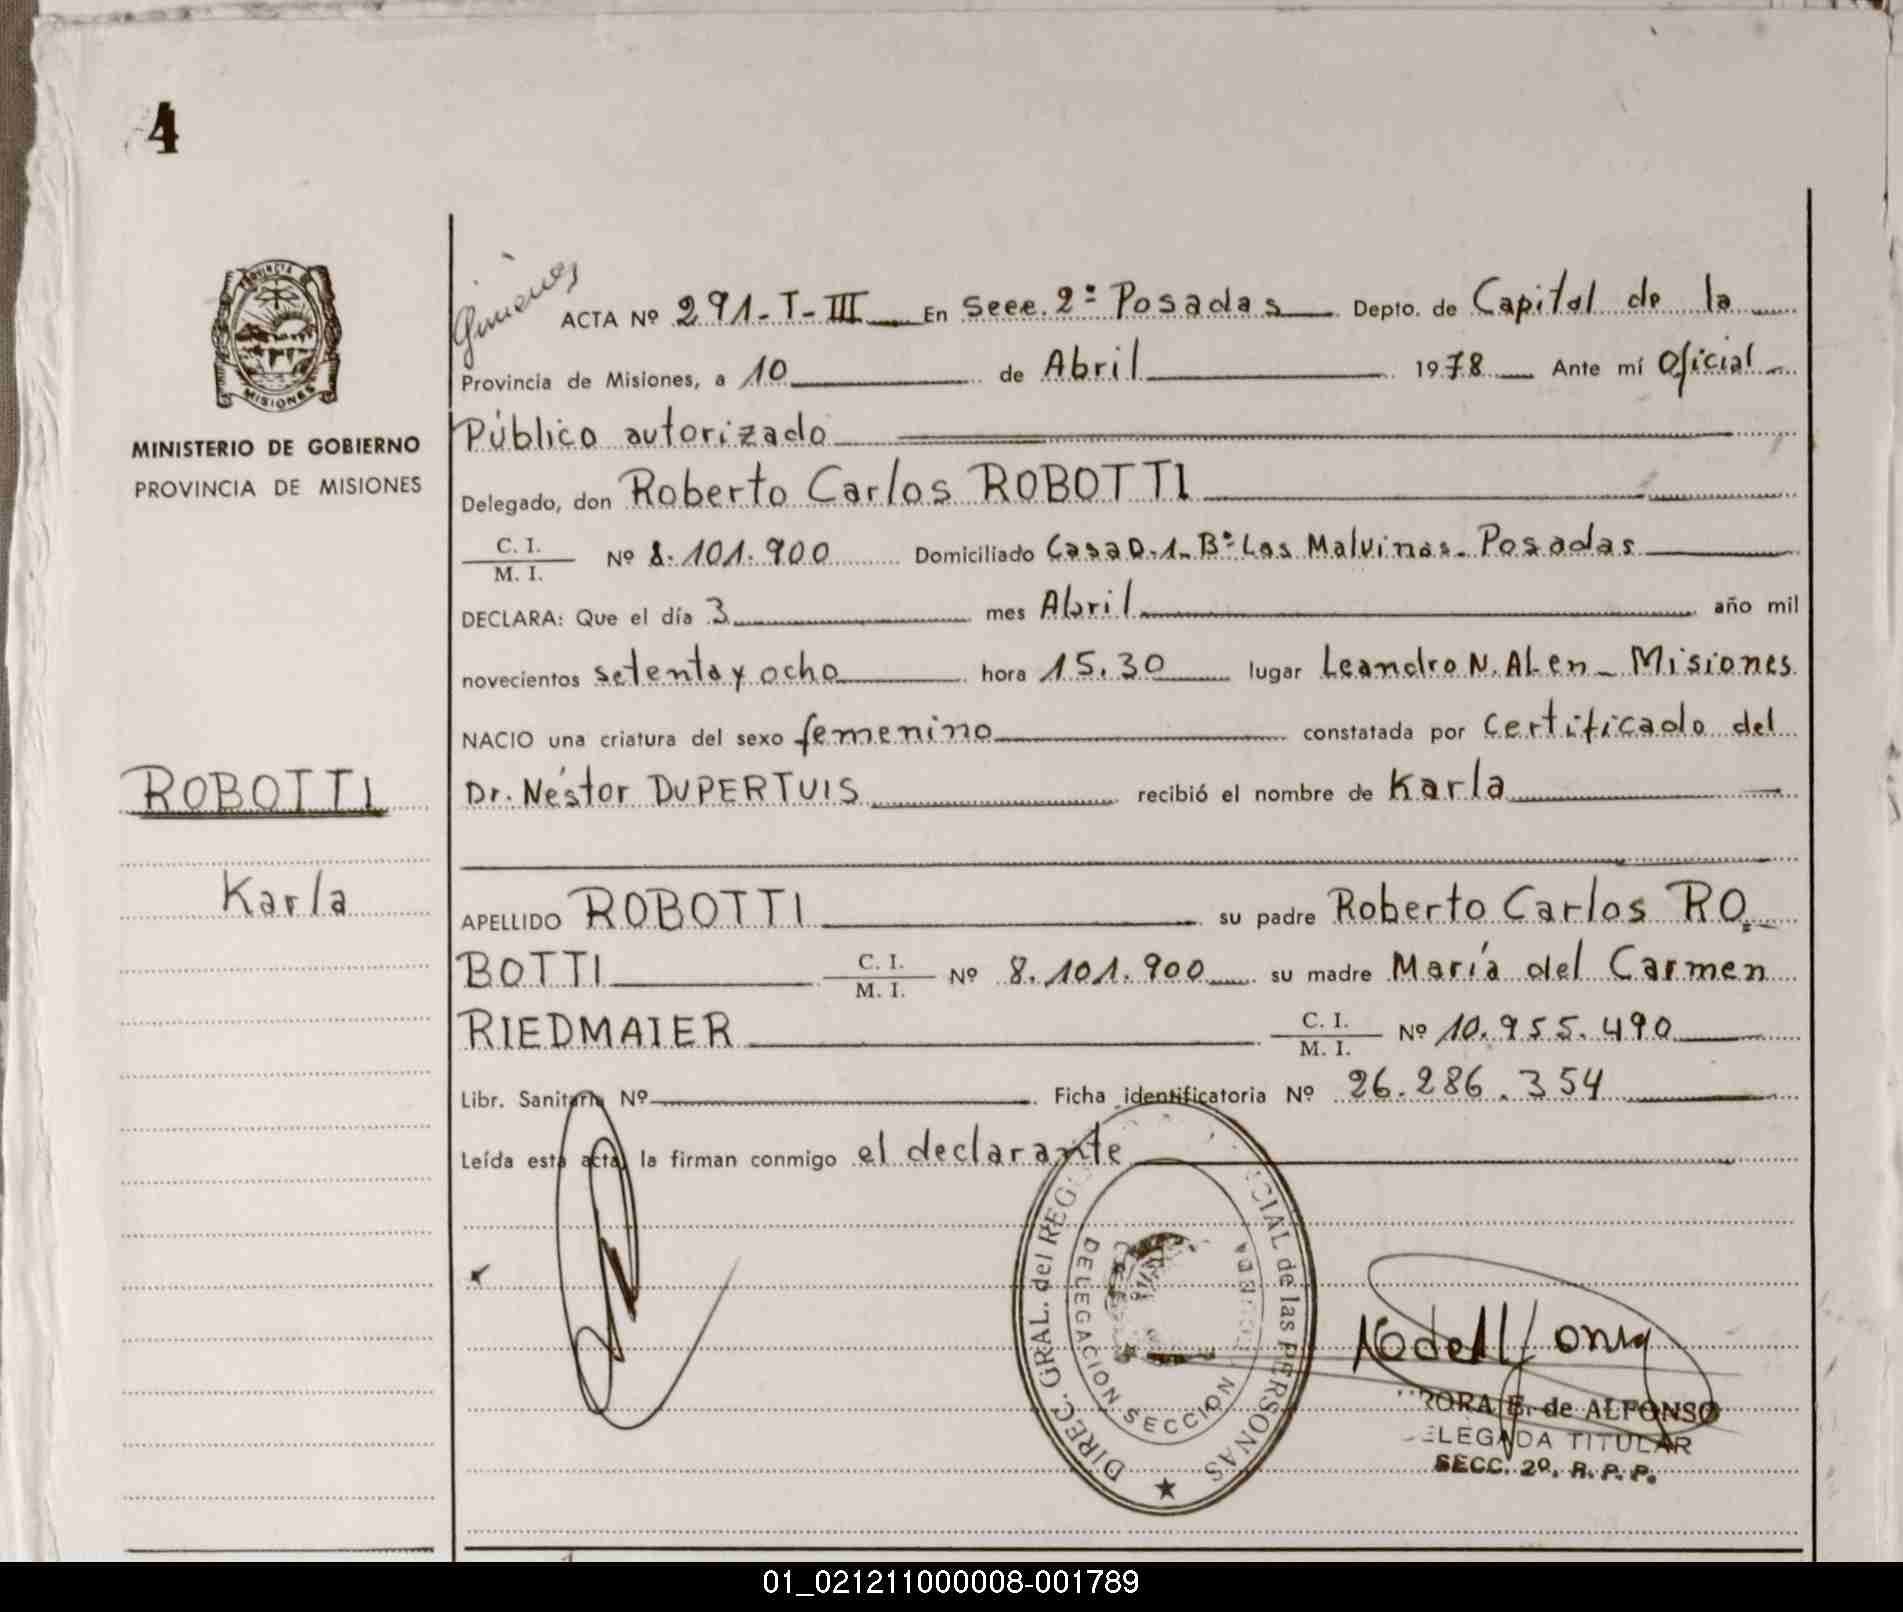 4
PROVINCIA DE
MISIONES
MINISTERIO DE GOBIERNO
PROVINCIA DE MISIONES
ROBOTTI
Karla
Gimenez
ACTA Nº 291-T-III En Secc. 2º Posadas Depto. de Capital de la
Provincia de Misiones, a 10 de Abril 1978 Ante mí Oficial
Público autorizado
Delegado, don Roberto Carlos ROBOTTI
C. I.
M. I. Nº 8.101.900 Domiciliado Casa D.1. Bº Las Malvinas - Posadas
DECLARA: Que el día 3 mes Abril año mil
novecientos setenta y ocho hora 15.30 lugar Leandro N. ALen - Misiones
NACIO una criatura del sexo femenino constatada por Certificado del
Dr. Néstor DUPERTUIS recibió el nombre de Karla
APELLIDO ROBOTTI su padre Roberto Carlos RO-
BOTTI C. I.
M. I. Nº 8.101.900 su madre María del Carmen
RIEDMAIER C. I.
M. I. Nº 10.955.490
Libr. Sanitaria Nº Ficha identificatoria Nº 26.286.354
Leída esta acta, la firman conmigo el declarante
DIREC. GRAL. del REG CIAL de las PERSONAS
DELEGACION SECCION
RORA E. de ALFONSO
ELEGADA TITULAR
SECC. 2º. R. P. P.
01_021211000008-001789